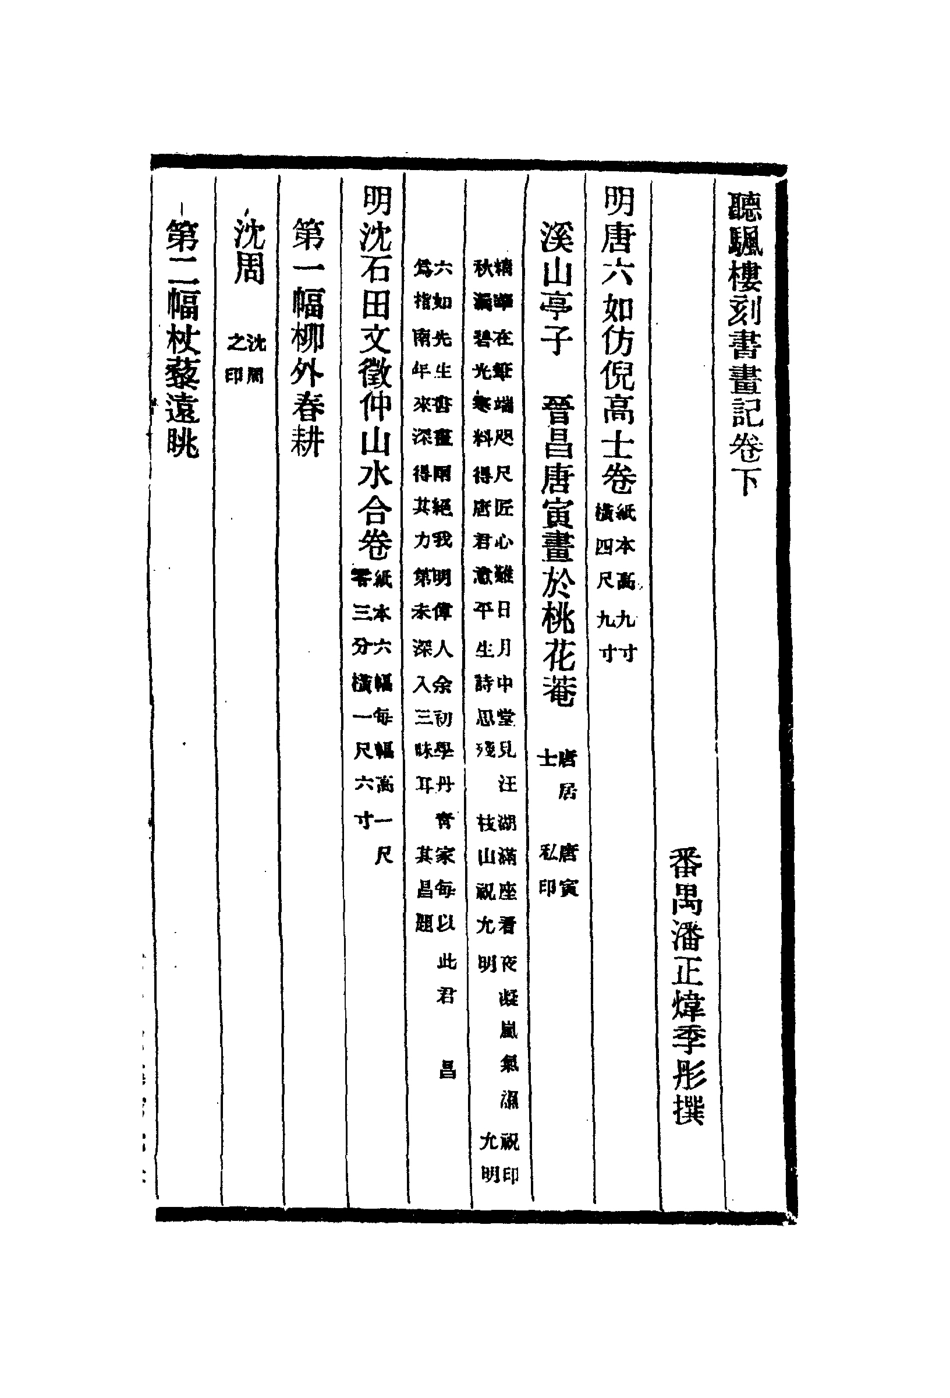 聽颿樓刻書畫記卷下
番禺潘正煒季彤撰
明唐六如仿倪高士卷
紙本高九寸
橫四尺九寸
溪山亭子　晉昌唐寅畫於桃花菴
唐居　唐寅
士　私印
精華在筆端咫尺匠心難日月中堂見汪湖滿座看夜凝嵐氣濕　祝印
秋瀾碧光寒料得唐君意平生詩思殘　枝山祝允明　允明
六如先生書畫兩絕我明偉人余初學丹青家每以此君　昌
爲指南年來深得其力第未深入三昧耳　其昌題
明沈石田文徵仲山水合卷
紙本六幅每幅高一尺
零三分橫一尺六寸
第一幅柳外春耕
沈周
沈周
之印
第二幅杖藜遠眺